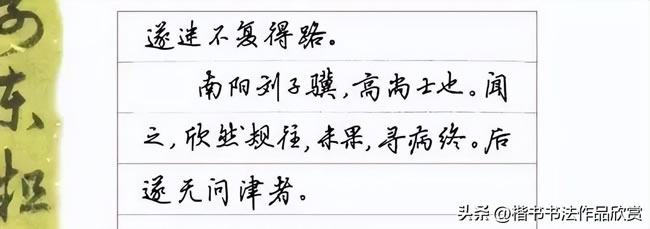 遂迷不复得路。
南阳刘子骥，高尚士也。闻
之，欣然规往，未果，寻病终。后
遂无问津者。
东
头条 @楷书书法作品欣赏